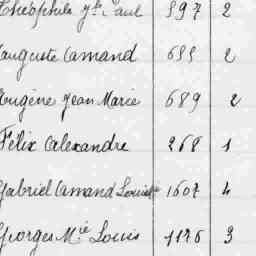 Théophile Jh Paul 897 2
Auguste Amand 699 2
Eugène Jean Marie 689 2
Félix Alexandre 268 1
Gabriel Amand Louis 1607 4
Georges Mie Louis 1176 3